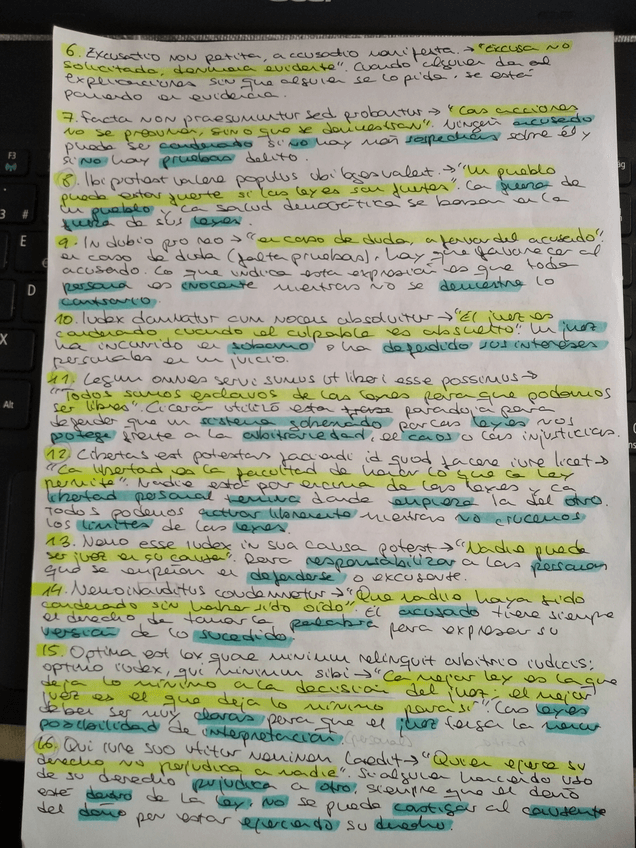 6. Excusatio non petita, accusatio manifesta. → "Excusa no
solicitada, denuncia evidente". Cuando alguien da al
explicaciones sin que alguien se lo pida, se está
poniendo en evidencia.
7. Facta non praesumuntur sed probantur → "Las acciones
no se presumen, sino que se demuestran". Ningún acusado
puede ser condenado si no hay más sospechas sobre él y
si no hay pruebas delito.
8. Ibi potest valere populus ubi leges valent. → "Un pueblo
puede estar fuerte si las leyes son fuertes". La fuerza de
un pueblo y la salud democrática se basan en la
fuerza de sus leyes.
9. In dubio pro reo → "en caso de duda, a favor del acusado".
en caso de duda (falta pruebas), hay que favorecer al
acusado. Lo que indica esta expresión es que toda
persona es inocente mientras no se demuestre lo
contrario.
10. Iudex damnatur cum nocens absolvitur → "El juez es
condenado cuando el culpable es absuelto". Un juez
ha incurrido en soborno o ha defendido sus intereses
personales en un juicio.
11. Legum omnes servi sumus ut liberi esse possimus →
"Todos somos esclavos de las leyes para que podamos
ser libres". Cicerón utilizó esta frase paradoja para
defender que un sistema gobernado por las leyes nos
protege frente a la arbitrariedad, el caos o las injusticias.
12. Libertas est potestas faciendi id quod facere iure licet →
"La libertad es la facultad de hacer lo que la ley
permite". Nadie está por encima de las leyes y la
libertad personal termina donde empieza la del otro.
Todos podemos actuar libremente mientras no crucemos
los límites de las leyes.
13. Nemo esse iudex in sua causa potest → "Nadie puede
ser juez en su causa". Para responsabilizar a las personas
que se empeñan en defenderse o excusarse.
14. Nemo inauditus condemnetur → "Que nadie haya sido
condenado sin haber sido oído". El acusado tiene siempre
el derecho de tomar la palabra para expresar su
versión de lo sucedido.
15. Optima est lex quae minimum relinquit arbitrio iudicis;
optimo iudex, qui minimum sibi → "La mejor ley es la que
deja lo mínimo a la decisión del juez; el mejor
juez es el que deja lo mínimo para sí". Las leyes
deben ser muy claras para que el juez tenga la menor
posibilidad de interpretación.
16. Qui iure suo utitur neminem laedit → "Quien ejerce su
derecho no perjudica a nadie". Si alguien haciendo uso
de su derecho perjudica a otro, siempre que el daño
esté dentro de la ley, no se puede castigar al causante
del daño por estar ejerciendo su derecho.